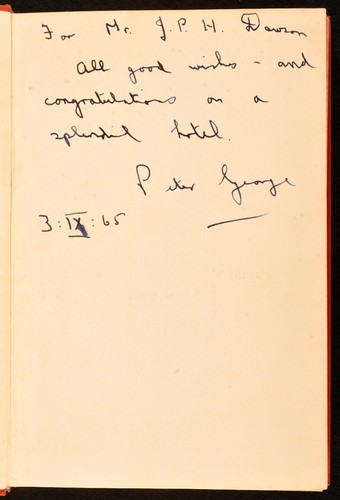 For Mr. J. P. H. Dawson
All good wishes - and
congratulations on a
splendid hotel.
Peter George
3 : IX : 65